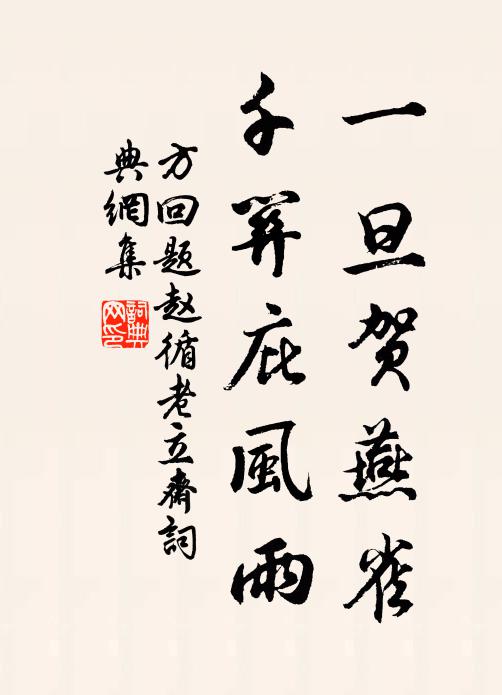 一旦贺燕雀
千筭庇風雨
方回题赵循老立齋詞
典網集
詞典网印